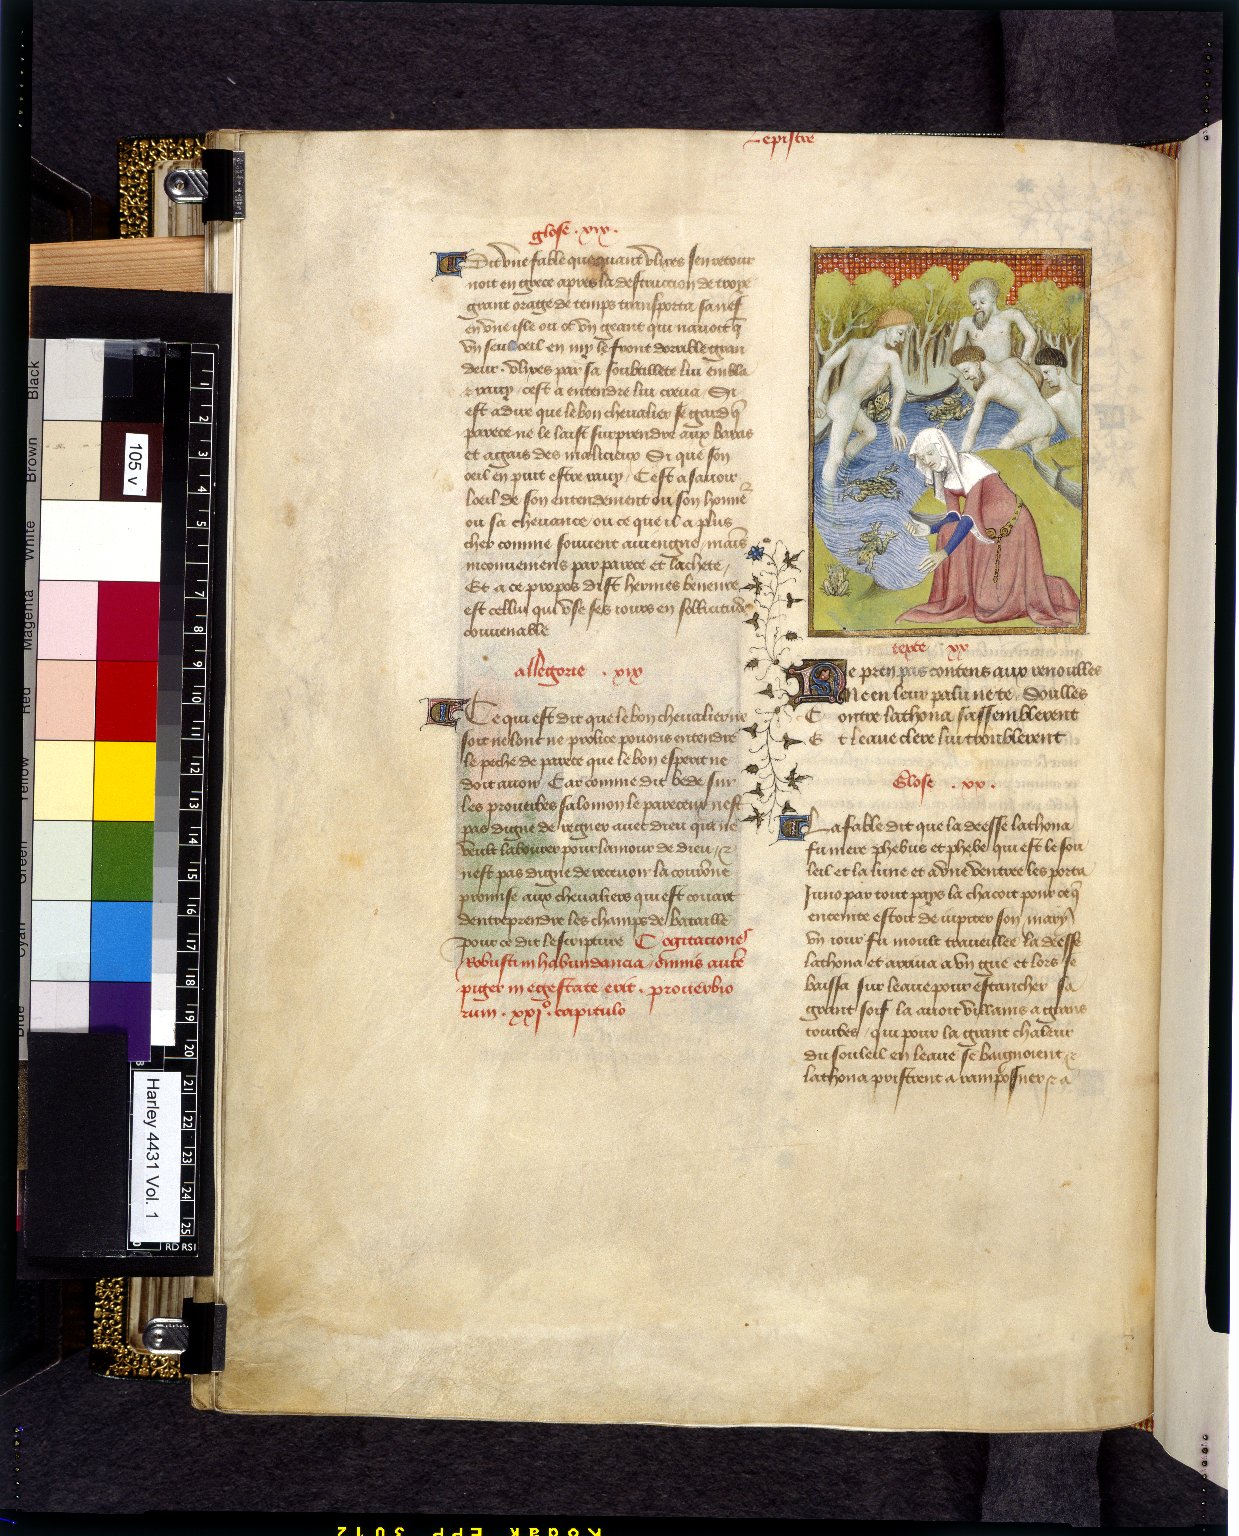 Lepistre
glose . xix .
Dit une fable que quant ulixes sen retour
noit en grece apres la destruccion de troye
grant orage de temps transporta sa nef
en une isle ou ot un geant qui navoit q̄
un seul oeil en my le front dorrible gran
deur . ulixes par sa soubtillete lui embla
& ravy / cest a entendre lui creva / Si
est a dire que le bon chevalier se gard q̄
parece ne le laist surprendre aux baras
et agais des malicieux Si que son
oeil en puit estre ravy / Cest a savoir
loeil de son entendement ou son honneᵣ
ou sa chevance ou ce que il a plus
cher comme souvent aviengne / mais
inconveniens par parece et lachete /
Et a ce propos dist hermes beneure
est cellui qui use ses iours en sollicitude
convenable
allegorie . xix
Ce qui est dit que le bon chevalier ne
soit ne lont ne prolice povons entendre
le peche de parece que le bon esperit ne
doit avoir Car comme dit bede sur
les prouverbes salomon le pareceux nest
pas digne de regner avec dieu qui ne
veult labourer pour lamour de dieu / &
nest pas digne de recevoir la couronne
promise aux chevaliers qui est couart
dentreprendre les champs de bataille
pour ce dit lescripture Cogitaciones
Robusti in habundancia / omnis autē
piger in egestate erit . proverbio
rum . xxiº. capitulo
texte xx
Ne pren pas contens aux renoulles
Ne en leur palu ne te soulles
Contre lathona sassemblerent
Et leaue clere lui troublerent
Glose . xx .
La fable dit que la deesse lathona
fu mere phebus et phebe qui est le sou
leil et la lune et a une ventree les porta
Juno par tout pays la chacoit pour ce q̄
encemte estoit de iupiter son mary
un iour fu moult travaillee la deesse
lathona et arriva a un gue et lors se
baissa sur leaue pour estancher sa
grant soif la avoit villains a grans
tourbes / qui pour la grant chaleur
du souleil en leaue se baignoient &
lathona pristrent a ramposner & a
Black
Brown
White
Magenta
Red
Yellow
Green
Cyan
Blue
105 v
1
2
3
4
5
6
7
8
9
10
11
12
13
14
15
16
17
18
19
20
21
22
23
24
25
Harley 4431 Vol. 1
RD RSI
Kodak EPP 3042